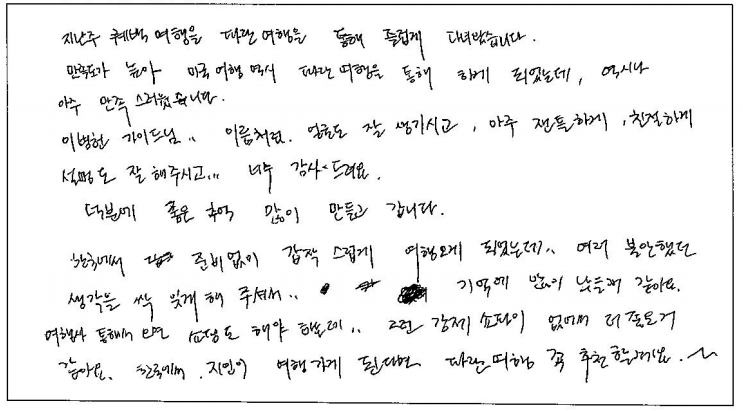 지난주 퀘백 여행을 파란여행을 통해 즐겁게 다녀왔습니다.
만족도가 높아 미국 여행 역시 파란여행을 통해 하게 되었는데, 역시나
아주 만족스러웠습니다.
이병헌 가이드님.. 이름처럼. 얼굴도 잘 생기시고, 아주 젠틀하게, 친절하게
설명도 잘 해주시고... 너무 감사드려요.
덕분에 좋은 추억 많이 만들고 갑니다.
한국에서 준비없이 갑작스럽게 여행오게 되었는데.. 여러 불안했던
생각을 싹 잊게 해 주셔서.. 기억에 많이 남을거 같아요.
여행사 통해서 오면 쇼핑도 해야 하는데.. 그런 강제 쇼핑이 없어서 더 좋은거
같아요. 한국에서 지인이 여행가게 된다면 파란여행 꼭 추천할게요.~